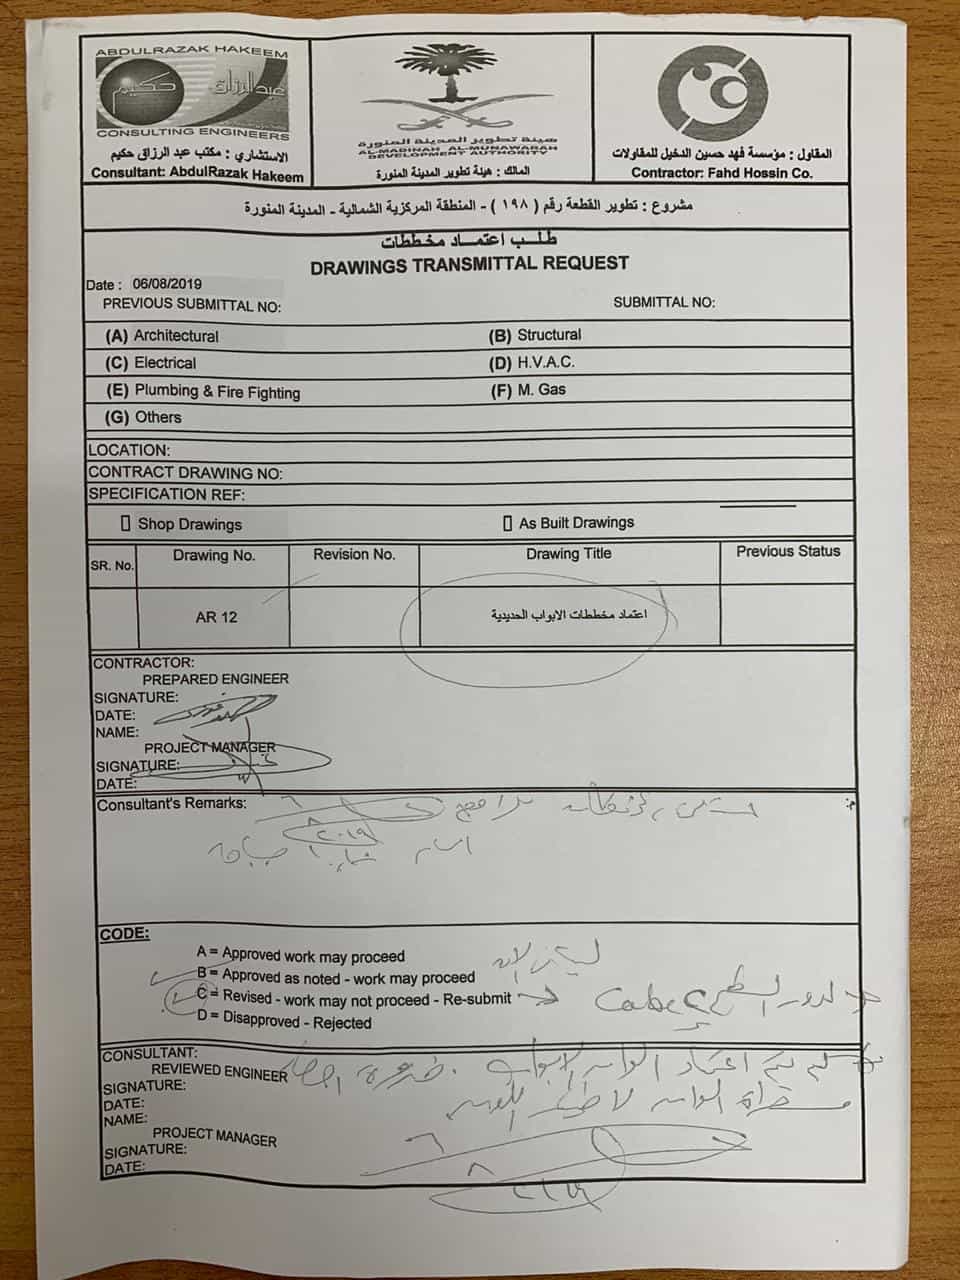 ABDULRAZAK HAKEEM
حكيم عبدالرزاق
CONSULTING ENGINEERS
الاستشاري : مكتب عبد الرزاق حكيم
Consultant: AbdulRazak Hakeem
هيئة تطوير المدينة المنورة
AL-MADINAH AL-MUNAWARAH
DEVELOPMENT AUTHORITY
المالك : هيئة تطوير المدينة المنورة
المقاول : مؤسسة فهد حسين الدخيل للمقاولات
Contractor: Fahd Hossin Co.
مشروع : تطوير القطعة رقم ( ١٩٨ ) - المنطقة المركزية الشمالية - المدينة المنورة
طلب اعتماد مخططات
DRAWINGS TRANSMITTAL REQUEST
Date : 06/08/2019
PREVIOUS SUBMITTAL NO:
SUBMITTAL NO:
(A) Architectural
(B) Structural
(C) Electrical
(D) H.V.A.C.
(E) Plumbing & Fire Fighting
(F) M. Gas
(G) Others
LOCATION:
CONTRACT DRAWING NO:
SPECIFICATION REF:
Shop Drawings
As Built Drawings
SR. No.
Drawing No.
Revision No.
Drawing Title
Previous Status
AR 12
اعتماد مخططات الابواب الحديدية
CONTRACTOR:
PREPARED ENGINEER
SIGNATURE:
DATE:
NAME:
PROJECT MANAGER
SIGNATURE:
DATE:
Consultant's Remarks:
م:
٦
٨
٢٠١٩
CODE:
A = Approved work may proceed
B = Approved as noted - work may proceed
C = Revised - work may not proceed - Re-submit
D = Disapproved - Rejected
CONSULTANT:
REVIEWED ENGINEER
لم يتم اعتماد الوان الابواب . ضرورة
SIGNATURE:
DATE:
NAME:
PROJECT MANAGER
SIGNATURE:
DATE:
٦
٨